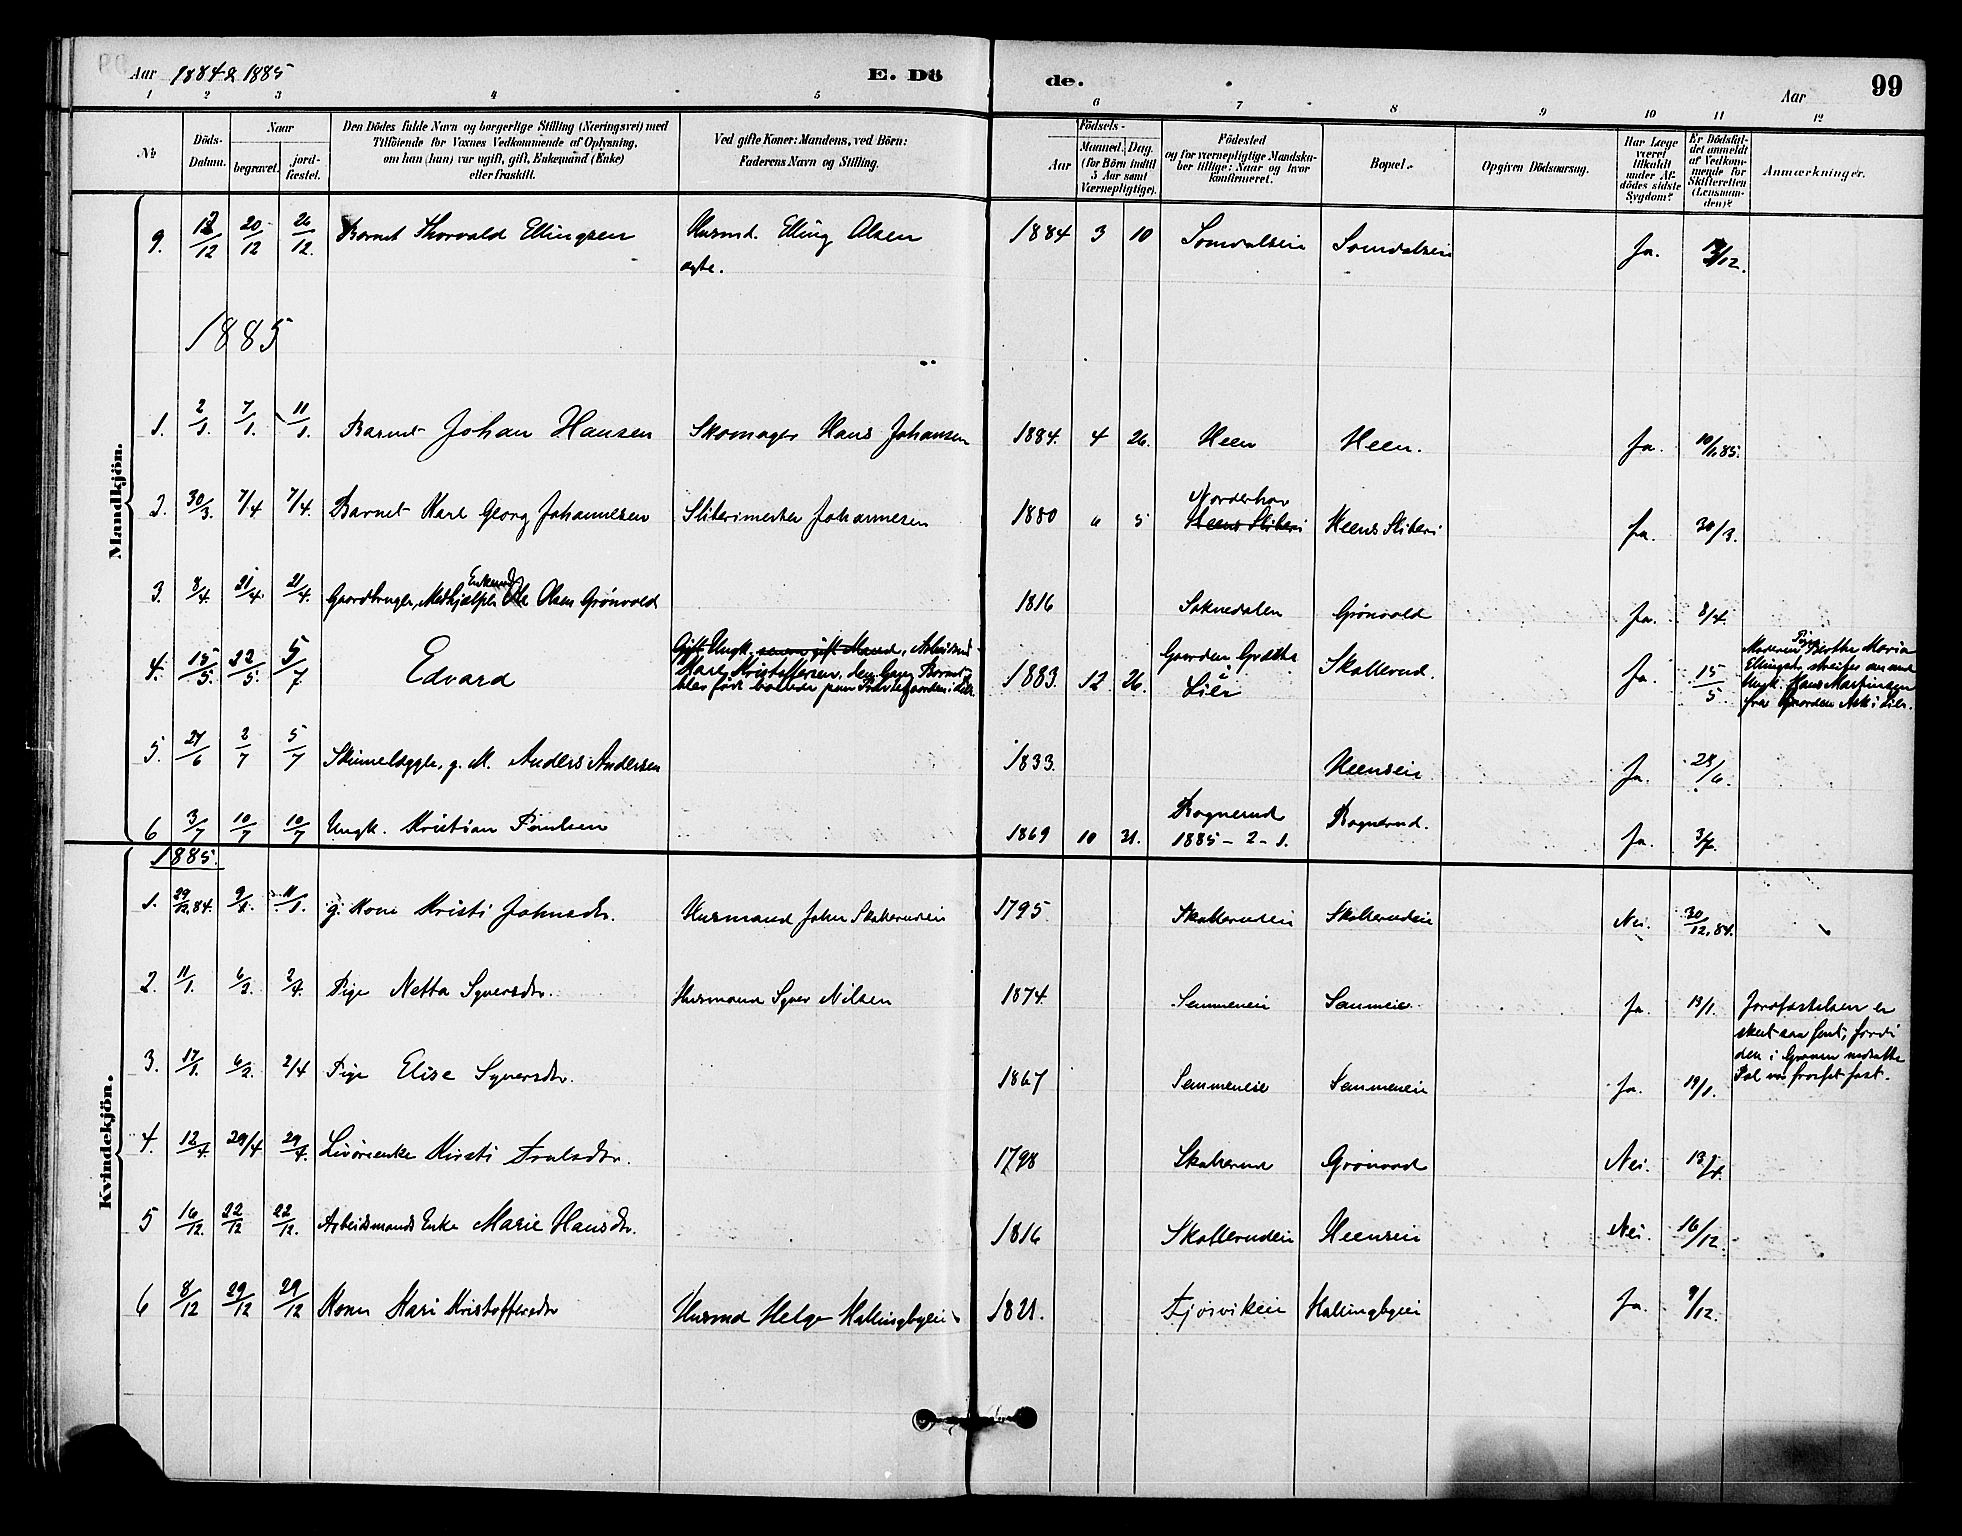 Aar 1884 & 1885 E. Dö de. Aar 99
1 2 3 4 5 6 7 8 9 10 11 12
No
Döds-Datum.
Naar
begravet.
jord-fæstet.
Den Dödes fulde Navn og borgerlige Stilling (Næringsvei) med
Tilföiende for Voxnes Vedkommende af Oplysning,
om han (hun) var ugift, gift, Enkemand (Enke)
eller fraskilt.
Ved gifte Koner: Mandens, ved Börn:
Faderens Navn og Stilling.
Födsels-
Aar
Maaned. Dag.
(for Börn indtil
5 Aar samt
Værnepligtige).
Födested
og for værnepligtige Mandska-
ber tillige: Naar og hvor
konfirmeret.
Bopæl.
Opgiven Dödsaarsag.
Har Læge
været
tilkaldt
under Af-
dödes sidste
Sygdom?
Er Dödsfal-
det anmeldt
af Vedkom-
mende for
Skifteretten
(Lensman-
den)?
Anmærkninger.
Mandkjön.
9. 20/12 26/12. Barnet Thorvald Ellingsen Husmd. Elling Olsen 1884 3 10 Somdalseie Somdalseie Ja.
ægte.
1885
1. 2/1. 7/1. 11/1. Barnet Johan Hansen Skomager Hans Johansen 1884. 4 26. Heen Heen. Ja. 10/1 85.
2. 30/3. 7/4 7/4. Barnet Karl Georg Johannesen Sliberimester Johannesen 1880 6 5 Norderhov Heens Sliberi Heens Sliberi Ja. 30/3.
3. 8/4. 21/4. 21/4. Gaardbruger, Medhjælper Enkemd Ole Olsen Grönvold 1816 Soknedalen Grönvold Ja. 8/4.
4. 15/5. 22/5. 5/7. Edvard
Gift Ungk. Arbeidsmd
Karl Kristoffersen, den Gang Barnet
blev födt boende paa
1883. 12 26. Gaarden Lier Skollerud. Ja. 15/5
Moderen Pige Berthe Maria
Ungk. Hans Martinsen
fra Gaarden Ask i Lier.
5. 27/6 2/7 5/7 g. M. Anders Andersen 1833. Heenseie Ja. 28/6.
6 3/7 10/7 10/7 Ungk. Kristian Paulsen 1869 10 31. Bognerud Bognerud. Ja. 3/7.
1885 - 2 - 1.
Kvindekjön.
1885.
1. 29/12.84. 9/1. 11/1. g. Kone Kristi Johnsdtr. Husmand John Skollerudeie 1795. Skollerudeie Skollerudeie Nei. 30/12.84.
2. 11/1. 6/2. 2/4. Pige Netta Syversdtr. Husmand Syver Nilsen 1874. Semmeneie Semmeneie Ja. 13/1.
Jordfæstelsen er
skeet saa sent, fordi
den i Graven nedsatte
Pæl var frosset fast.
3. 17/1. 6/2. 2/4 Pige Elise Syversdtr. 1867 Semmeneie Semmeneie Ja. 19/1.
4. 12/4. 29/4 29/4. Kirsti 1798 Skollerud Grönvold Nei. 13/4.
5 16/12. 22/12 22/12. Arbeidsmands Enke Marie Hansdtr. 1816 Skollerudeie Heenseie Nei. 16/12.
6 8/12 29/12 29/12 Kone Kari Kristoffersdtr Husmd Helge Hallingbyeie 1821. Fjösvikeie Hallingbyeie Ja. 9/12.